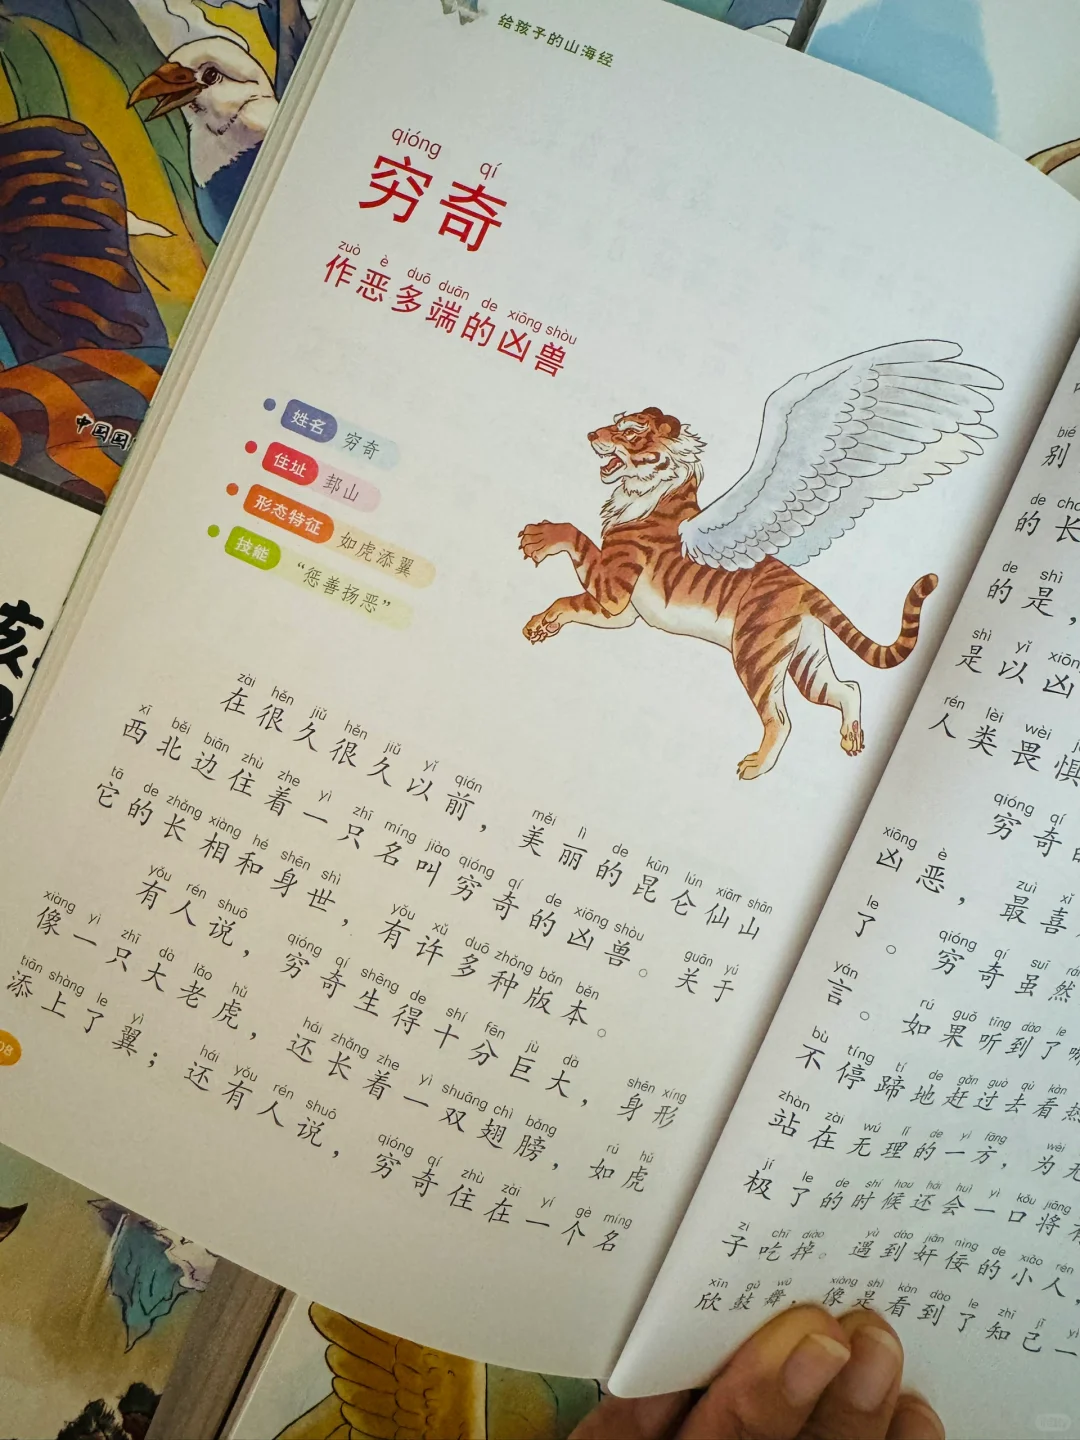 给孩子的山海经
qióng qí
穷奇
zuò è duō duān de xiōng shòu
作恶多端的凶兽
姓名 穷奇
住址 邽山
形态特征 如虎添翼
技能 “惩善扬恶”
zài hěn jiǔ hěn jiǔ yǐ qián měi lì de kūn lún xiān shān
在很久很久以前，美丽的昆仑仙山
xī běi biān zhù zhe yì zhī míng jiào qióng qí de xiōng shòu guān yú
西北边住着一只名叫穷奇的凶兽。关于
tā de zhǎng xiàng hé shēn shì yǒu xǔ duō zhǒng bǎn běn
它的长相和身世，有许多种版本。
yǒu rén shuō qióng qí shēng de shí fēn jù dà shēn xíng
有人说，穷奇生得十分巨大，身形
xiàng yì zhī dà lǎo hǔ hái zhǎng zhe yì shuāng chì bǎng rú hǔ
像一只大老虎，还长着一双翅膀，如虎
tiān shàng le yì hái yǒu rén shuō qióng qí zhù zài yí gè míng
添上了翼；还有人说，穷奇住在一个名
08
bié
别
de
的长
de shì
的是，
shì yǐ
是以凶
rén lèi wèi
人类畏惧
qióng qí
穷奇
xiōng è zuì
凶恶，最喜
le qióng qí suī
了。穷奇虽然
yán rú guǒ tīng dào le
言。如果听到了
bù tíng tí de gǎn guò qù kàn
不停蹄地赶过去看热
zhàn zài wú lǐ de yì fāng wèi
站在无理的一方，为
jí le de shí hou hái huì yì kǒu jiāng
极了的时候还会一口将有
zi chī diào yù dào jiān nìng de xiǎo rén
子吃掉。遇到奸佞的小人，
xīn gǔ wǔ xiàng shì kàn dào le zhī jǐ
欣鼓舞，像是看到了知己一
中国国
孩